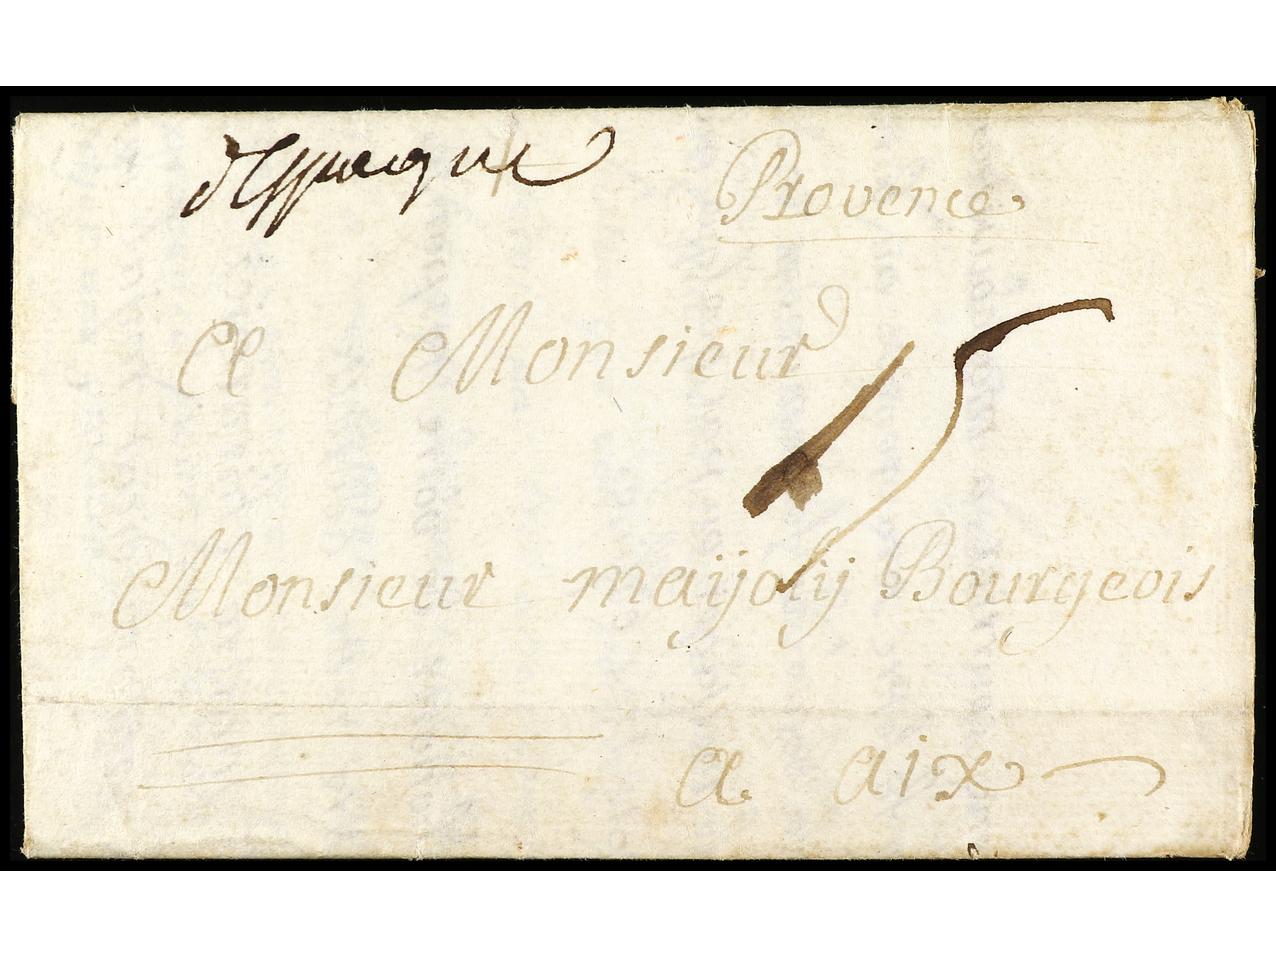 d'Espagne
Provence
A Monsieur
15
Monsieur maijolij Bourgeois
a aix